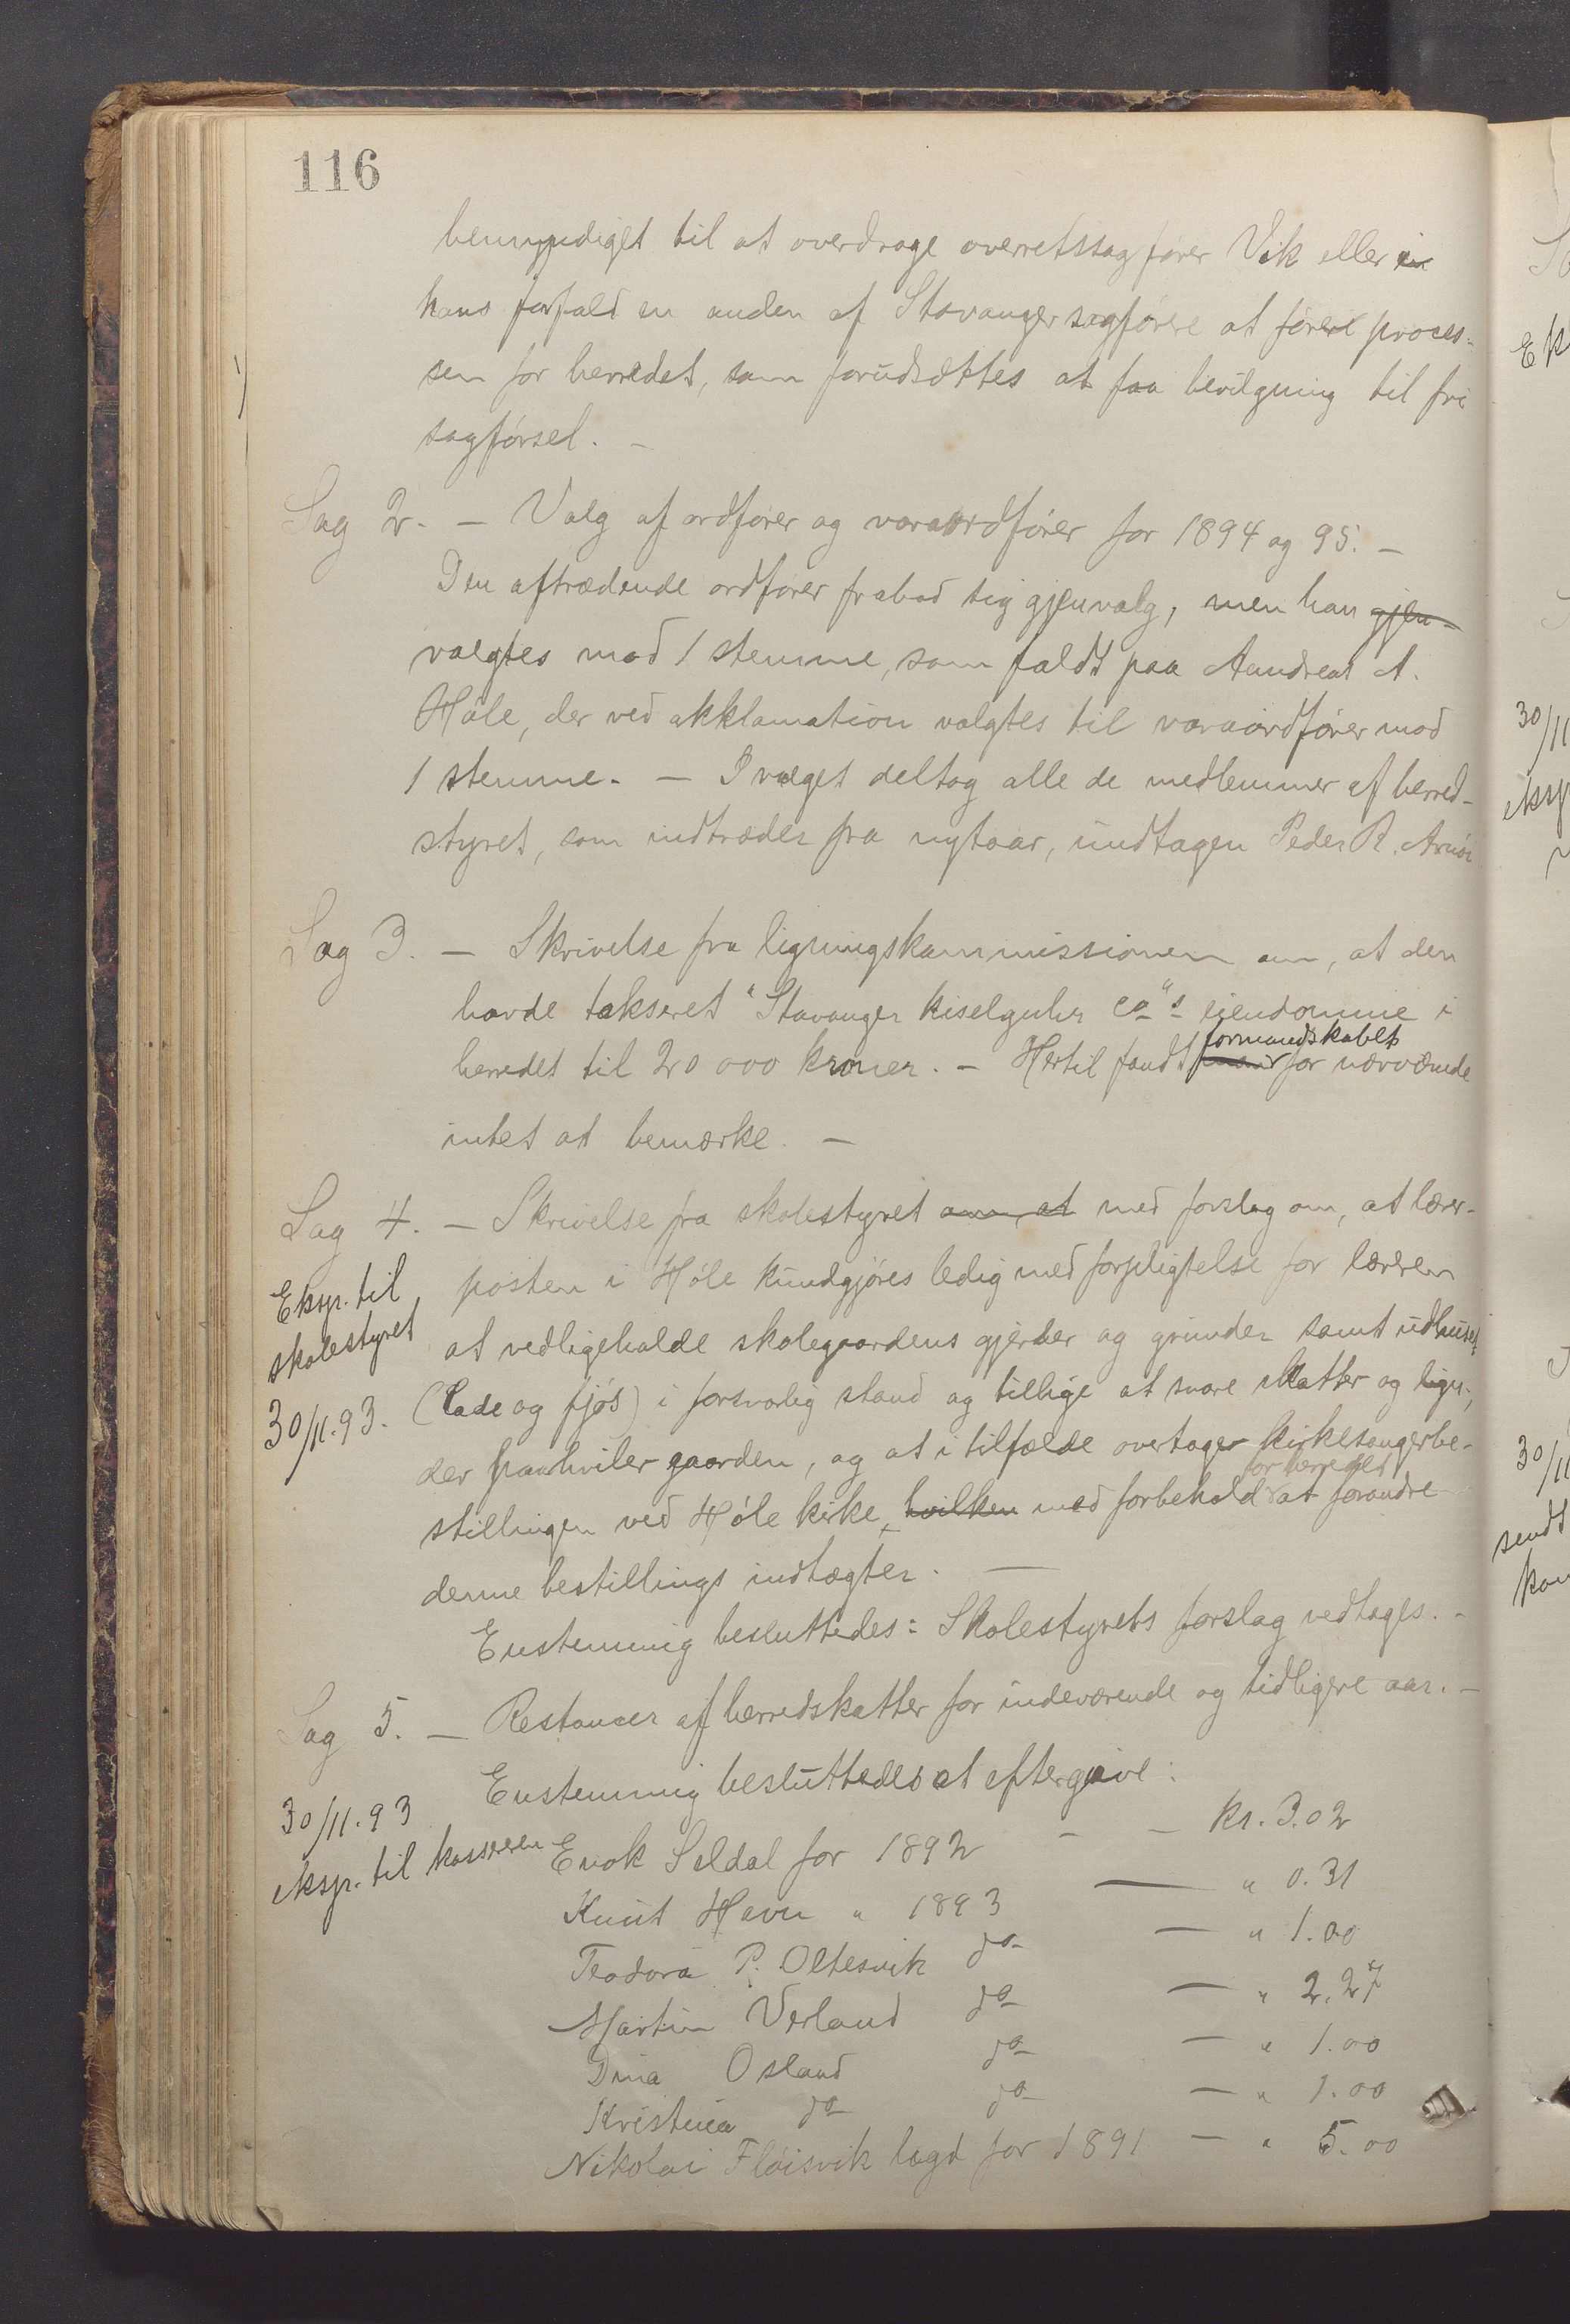 116
bemyndiget til at overdrage overretssagfører Vik eller i
hans forfald en anden af Stavanger sagførere at føre proces-
sen for herredet, som forudsættes at faa bevilgning til fri
sagførsel. —
Sag 2. — Valg af ordfører og varaordfører for 1894 og 95. —
Den aftrædende ordfører frabad sig gjenvalg, men han gjen-
valgtes mod 1 stemme, som faldt paa Aandreas A.
Høle, der ved akklamation valgtes til varaordfører mod
1 stemme. — I valget deltog alle de medlemmer af herred-
styret, som indtræder fra nytaar, undtagen Peder R.
Sag 3. — Skrivelse fra ligningskommissionen om, at den
havde takseret "Stavanger kiselguhr co"s eiendomme i
herredet til 20 000 kroner. — Hertil fandt formandskabet for nærværende
intet at bemærke. —
Sag 4. — Skrivelse fra skolestyret om, at med forslag om, at lærer-
posten i Høle kundgjøres ledig med forpligtelse for læreren
Eksp. til
skolestyret
30/11.93.
at vedligeholde skolegaardens gjerder og grinder samt udhuse
(lade og fjøs) i forsvarlig stand og tillige at svare skatter og lign.,
der paahviler gaarden, og at i tilfælde overtage kirkesangerbe-
stillingen ved Høle kirke, hvilken med forbehold for herredet at forandre
denne bestillings indtægter. —
Enstemmig besluttedes: Skolestyrets forslag vedtages. —
Sag 5. — Restancer af herredskatter for indeværende og tidligere aar. —
Enstemmig besluttedes at eftergive:
30/11.93
eksp. til kassereren
Enok Seldal for 1892 — — kr. 3.02
Knut Havn " 1893 — " 0.31
Teodora P. Oltesvik do — " 1.00
Martin Verland do — " 2.27
Dina Osland do — " 1.00
Kristina do do — " 1.00
Nikolai Fløisvik lagd for 1891 — " 5.00